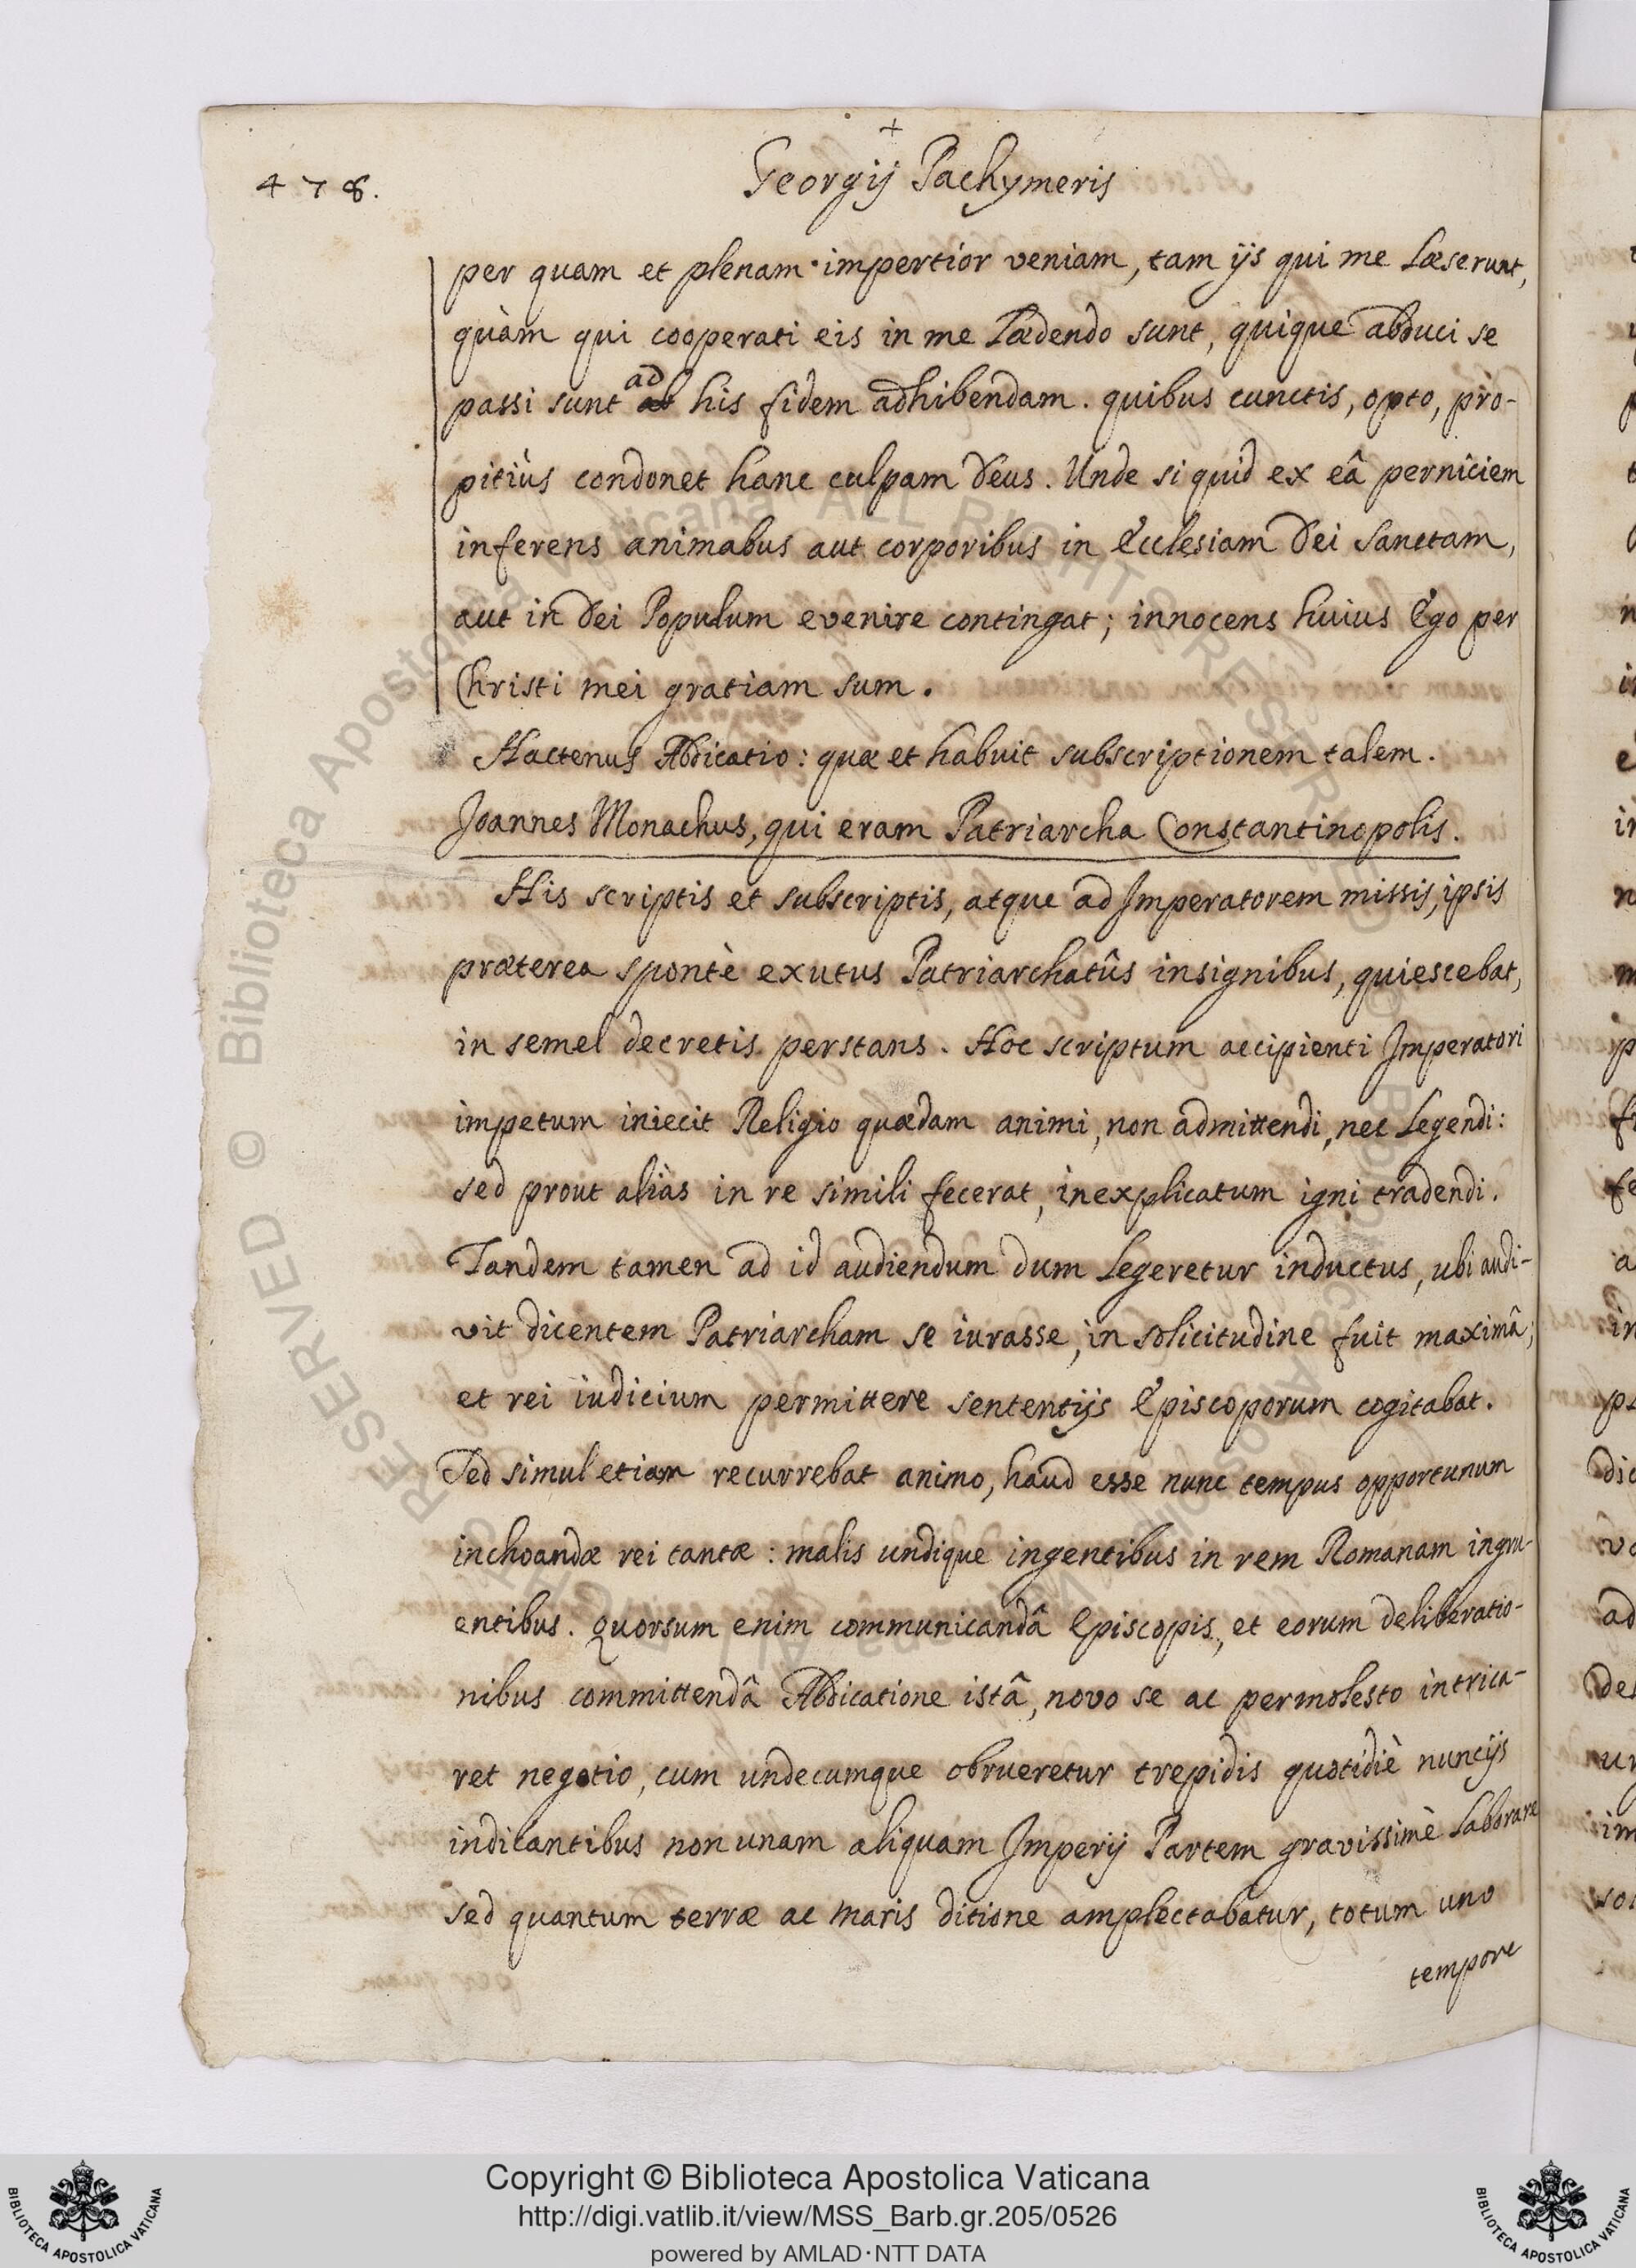 +
478.
Georgij Pachymeris
per quam et plenam impertior veniam, tam ijs qui me læserunt,
quàm qui cooperati eis in me lædendo sunt, quique abduci se
passi sunt ad his fidem adhibendam. quibus cunctis, opto, pro-
pitiùs condonet hanc culpam Deus. Unde si quid ex eâ perniciem
inferens animabus aut corporibus in Ecclesiam Dei sanctam,
aut in Dei Populum evenire contingat; innocens huius Ego per
Christi mei gratiam sum.
Hactenus Abdicatio: quæ et habuit subscriptionem talem.
Joannes Monachus, qui eram Patriarcha Constantinopolis.
His scriptis et subscriptis, atque ad Imperatorem missis, ipsis
præterea spontè exutus Patriarchatûs insignibus, quiescebat,
in semel decretis perstans. Hoc scriptum accipienti Imperatori
impetum iniecit Religio quædam animi, non admittendi, nec legendi:
sed prout aliàs in re simili fecerat, inexplicatum igni tradendi.
Tandem tamen ad id audiendum dum legeretur inductus, ubi audi-
vit dicentem Patriarcham se iurasse, in solicitudine fuit maximâ;
et rei iudicium permittere sententijs Episcoporum cogitabat.
Sed simul etiam recurrebat animo, haud esse nunc tempus opportunum
inchoandæ rei tantæ: malis undique ingentibus in rem Romanam ingru-
entibus. Quorsum enim communicandâ Episcopis, et eorum deliberatio-
nibus committendâ Abdicatione istâ, novo se ac permolesto intrica-
ret negotio, cum undecumque obrueretur trepidis quotidiè nuncijs
indicantibus non unam aliquam Imperij Partem gravissimè laborare
sed quantum terræ ac maris ditione amplectabatur, totum uno
tempore
Copyright © Biblioteca Apostolica Vaticana
http://digi.vatlib.it/view/MSS_Barb.gr.205/0526
powered by AMLAD · NTT DATA
BIBLIOTECA APOSTOLICA VATICANA
BIBLIOTECA APOSTOLICA VATICANA